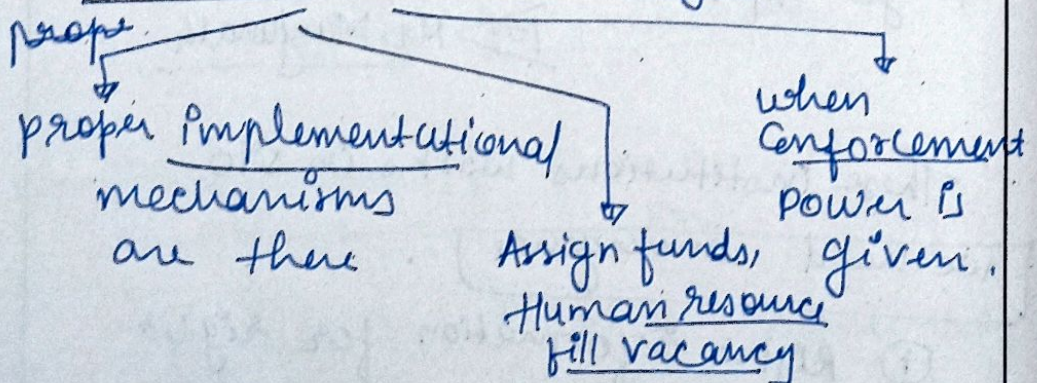 prope
proper implementational
mechanisms
are there
Assign funds,
Human resource
fill vacancy
when
enforcement
power is
given.